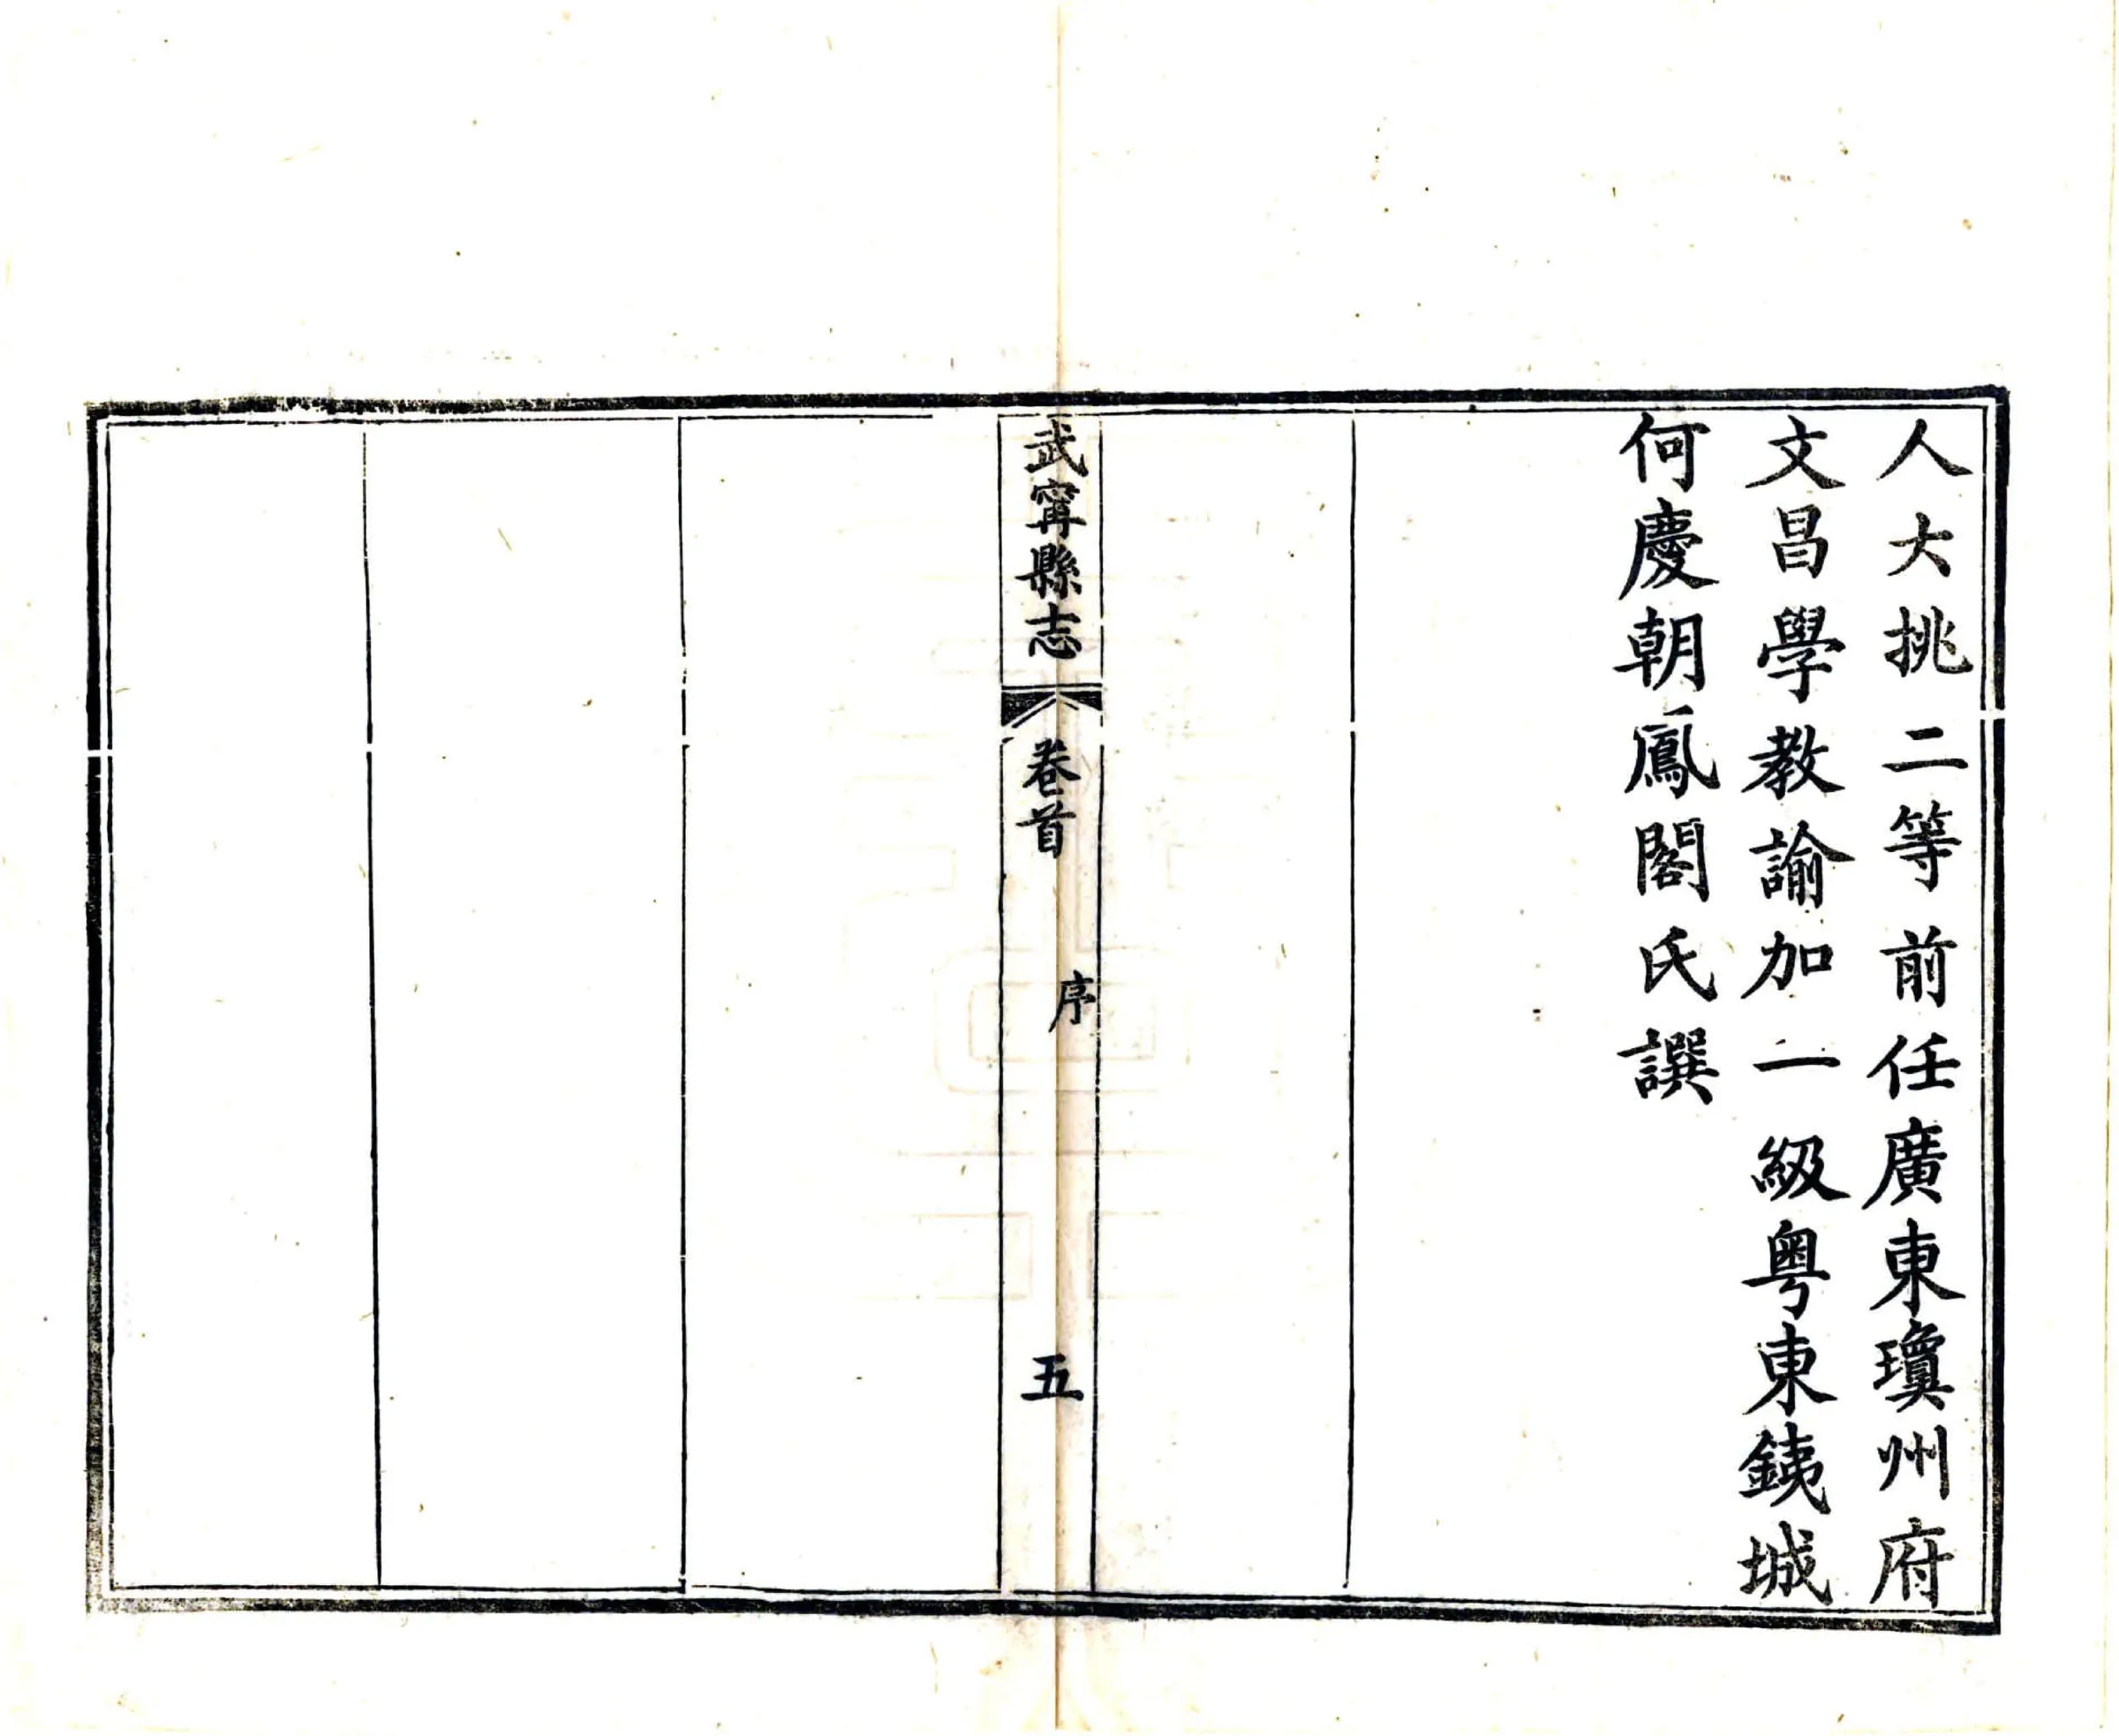 人大挑二等前任廣東瓊州府
文昌學教諭加一級粤東銕城
何慶朝鳳閣氏譔
武寧縣志
卷首
序
五